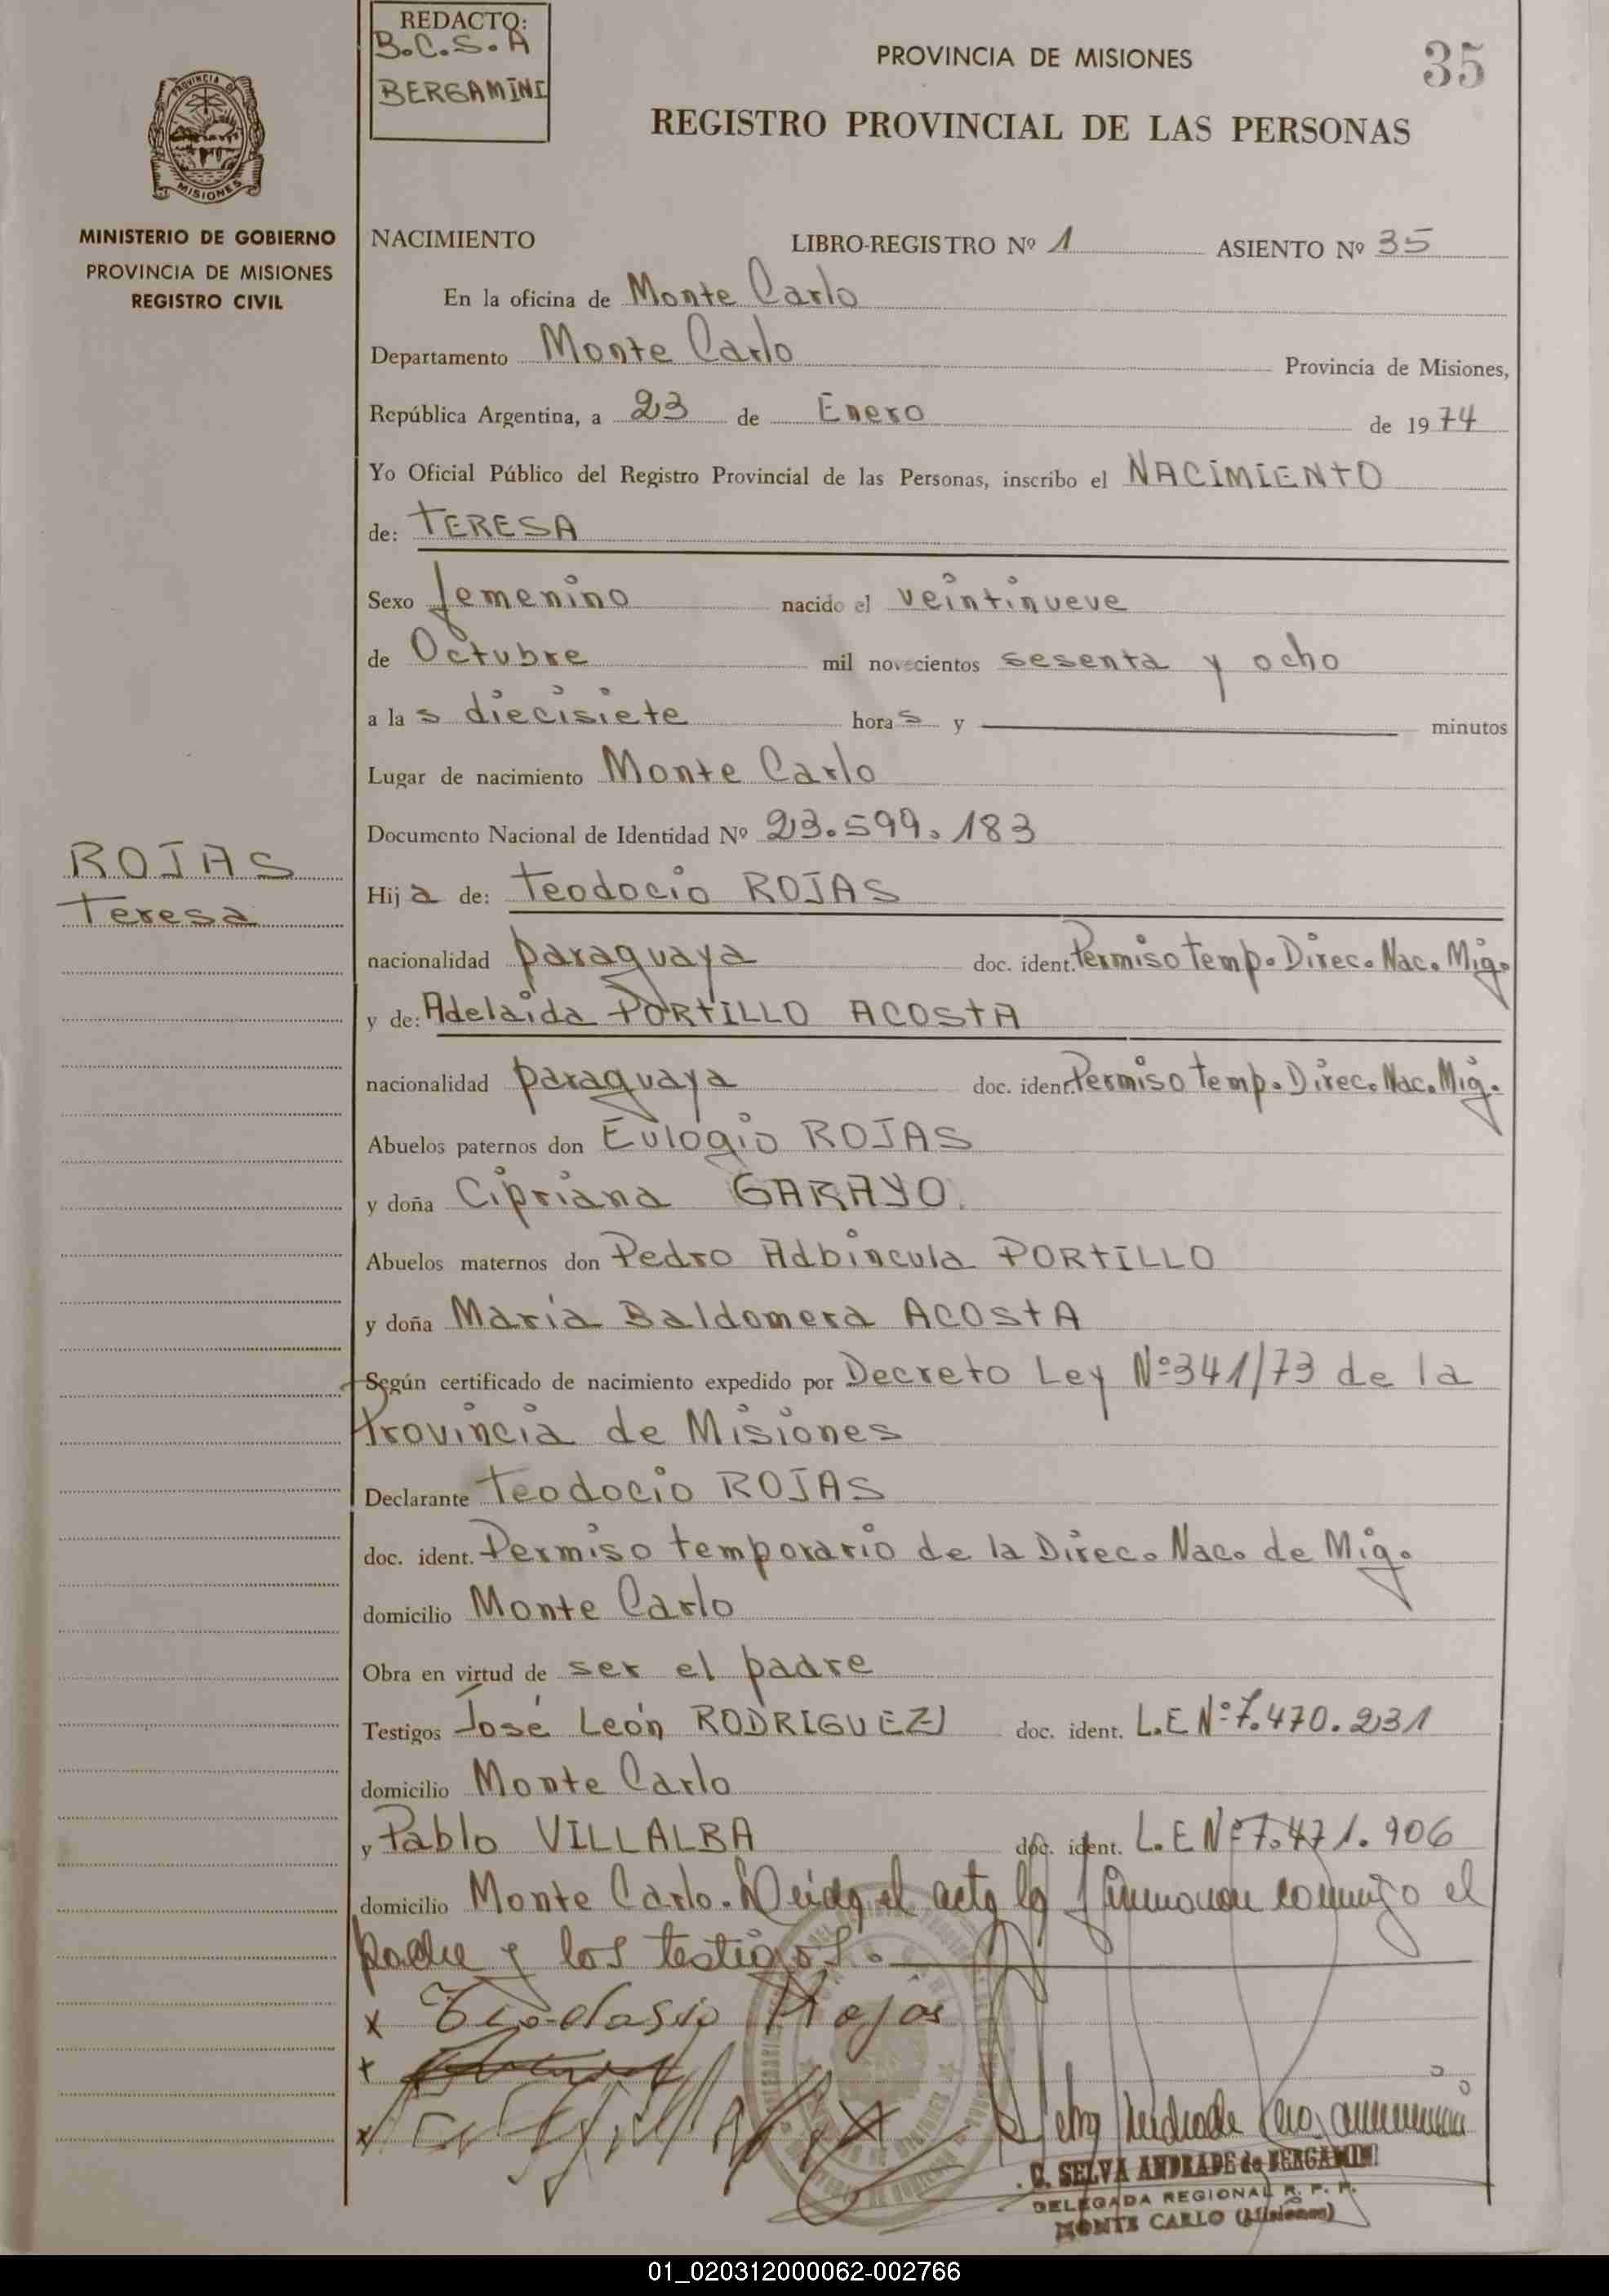 REDACTO:
B.C.S.A
BERGAMINI
PROVINCIA DE MISIONES
35
REGISTRO PROVINCIAL DE LAS PERSONAS
PROVINCIA DE
MISIONES
MINISTERIO DE GOBIERNO
PROVINCIA DE MISIONES
REGISTRO CIVIL
NACIMIENTO LIBRO-REGISTRO Nº 1 ASIENTO Nº 35
En la oficina de Monte Carlo
Departamento Monte Carlo Provincia de Misiones,
República Argentina, a 23 de Enero de 1974
Yo Oficial Público del Registro Provincial de las Personas, inscribo el NACIMIENTO
de: TERESA
Sexo femenino nacido el veintinueve
de Octubre mil novecientos sesenta y ocho
a las diecisiete horas y minutos
Lugar de nacimiento Monte Carlo
Documento Nacional de Identidad Nº 23.599.183
ROJAS
Teresa
Hija de: Teodocio ROJAS
nacionalidad paraguaya doc. ident. Permiso temp. Direc. Nac. Mig.
y de: Adelaida PORTILLO ACOSTA
nacionalidad paraguaya doc. ident. Permiso temp. Direc. Nac. Mig.
Abuelos paternos don Eulogio ROJAS
y doña Cipriana GARAYO.
Abuelos maternos don Pedro Adbincula PORTILLO
y doña María Baldomera ACOSTA
Según certificado de nacimiento expedido por Decreto Ley Nº 341/73 de la
Provincia de Misiones
Declarante Teodocio ROJAS
doc. ident. Permiso temporario de la Direc. Nac. de Mig.
domicilio Monte Carlo
Obra en virtud de ser el padre
Testigos José León RODRIGUEZ doc. ident. L.E Nº 7.470.231
domicilio Monte Carlo
y Pablo VILLALBA doc. ident. L.E Nº 7.471.906
domicilio Monte Carlo. Leida el acta la firmaron conmigo el
padre y los testigos.
x Teodasio Rojas
x
x
C. SELVA ANDRADE de BERGAMINI
DELEGADA REGIONAL R. P. P.
MONTE CARLO (Misiones)
01_020312000062-002766